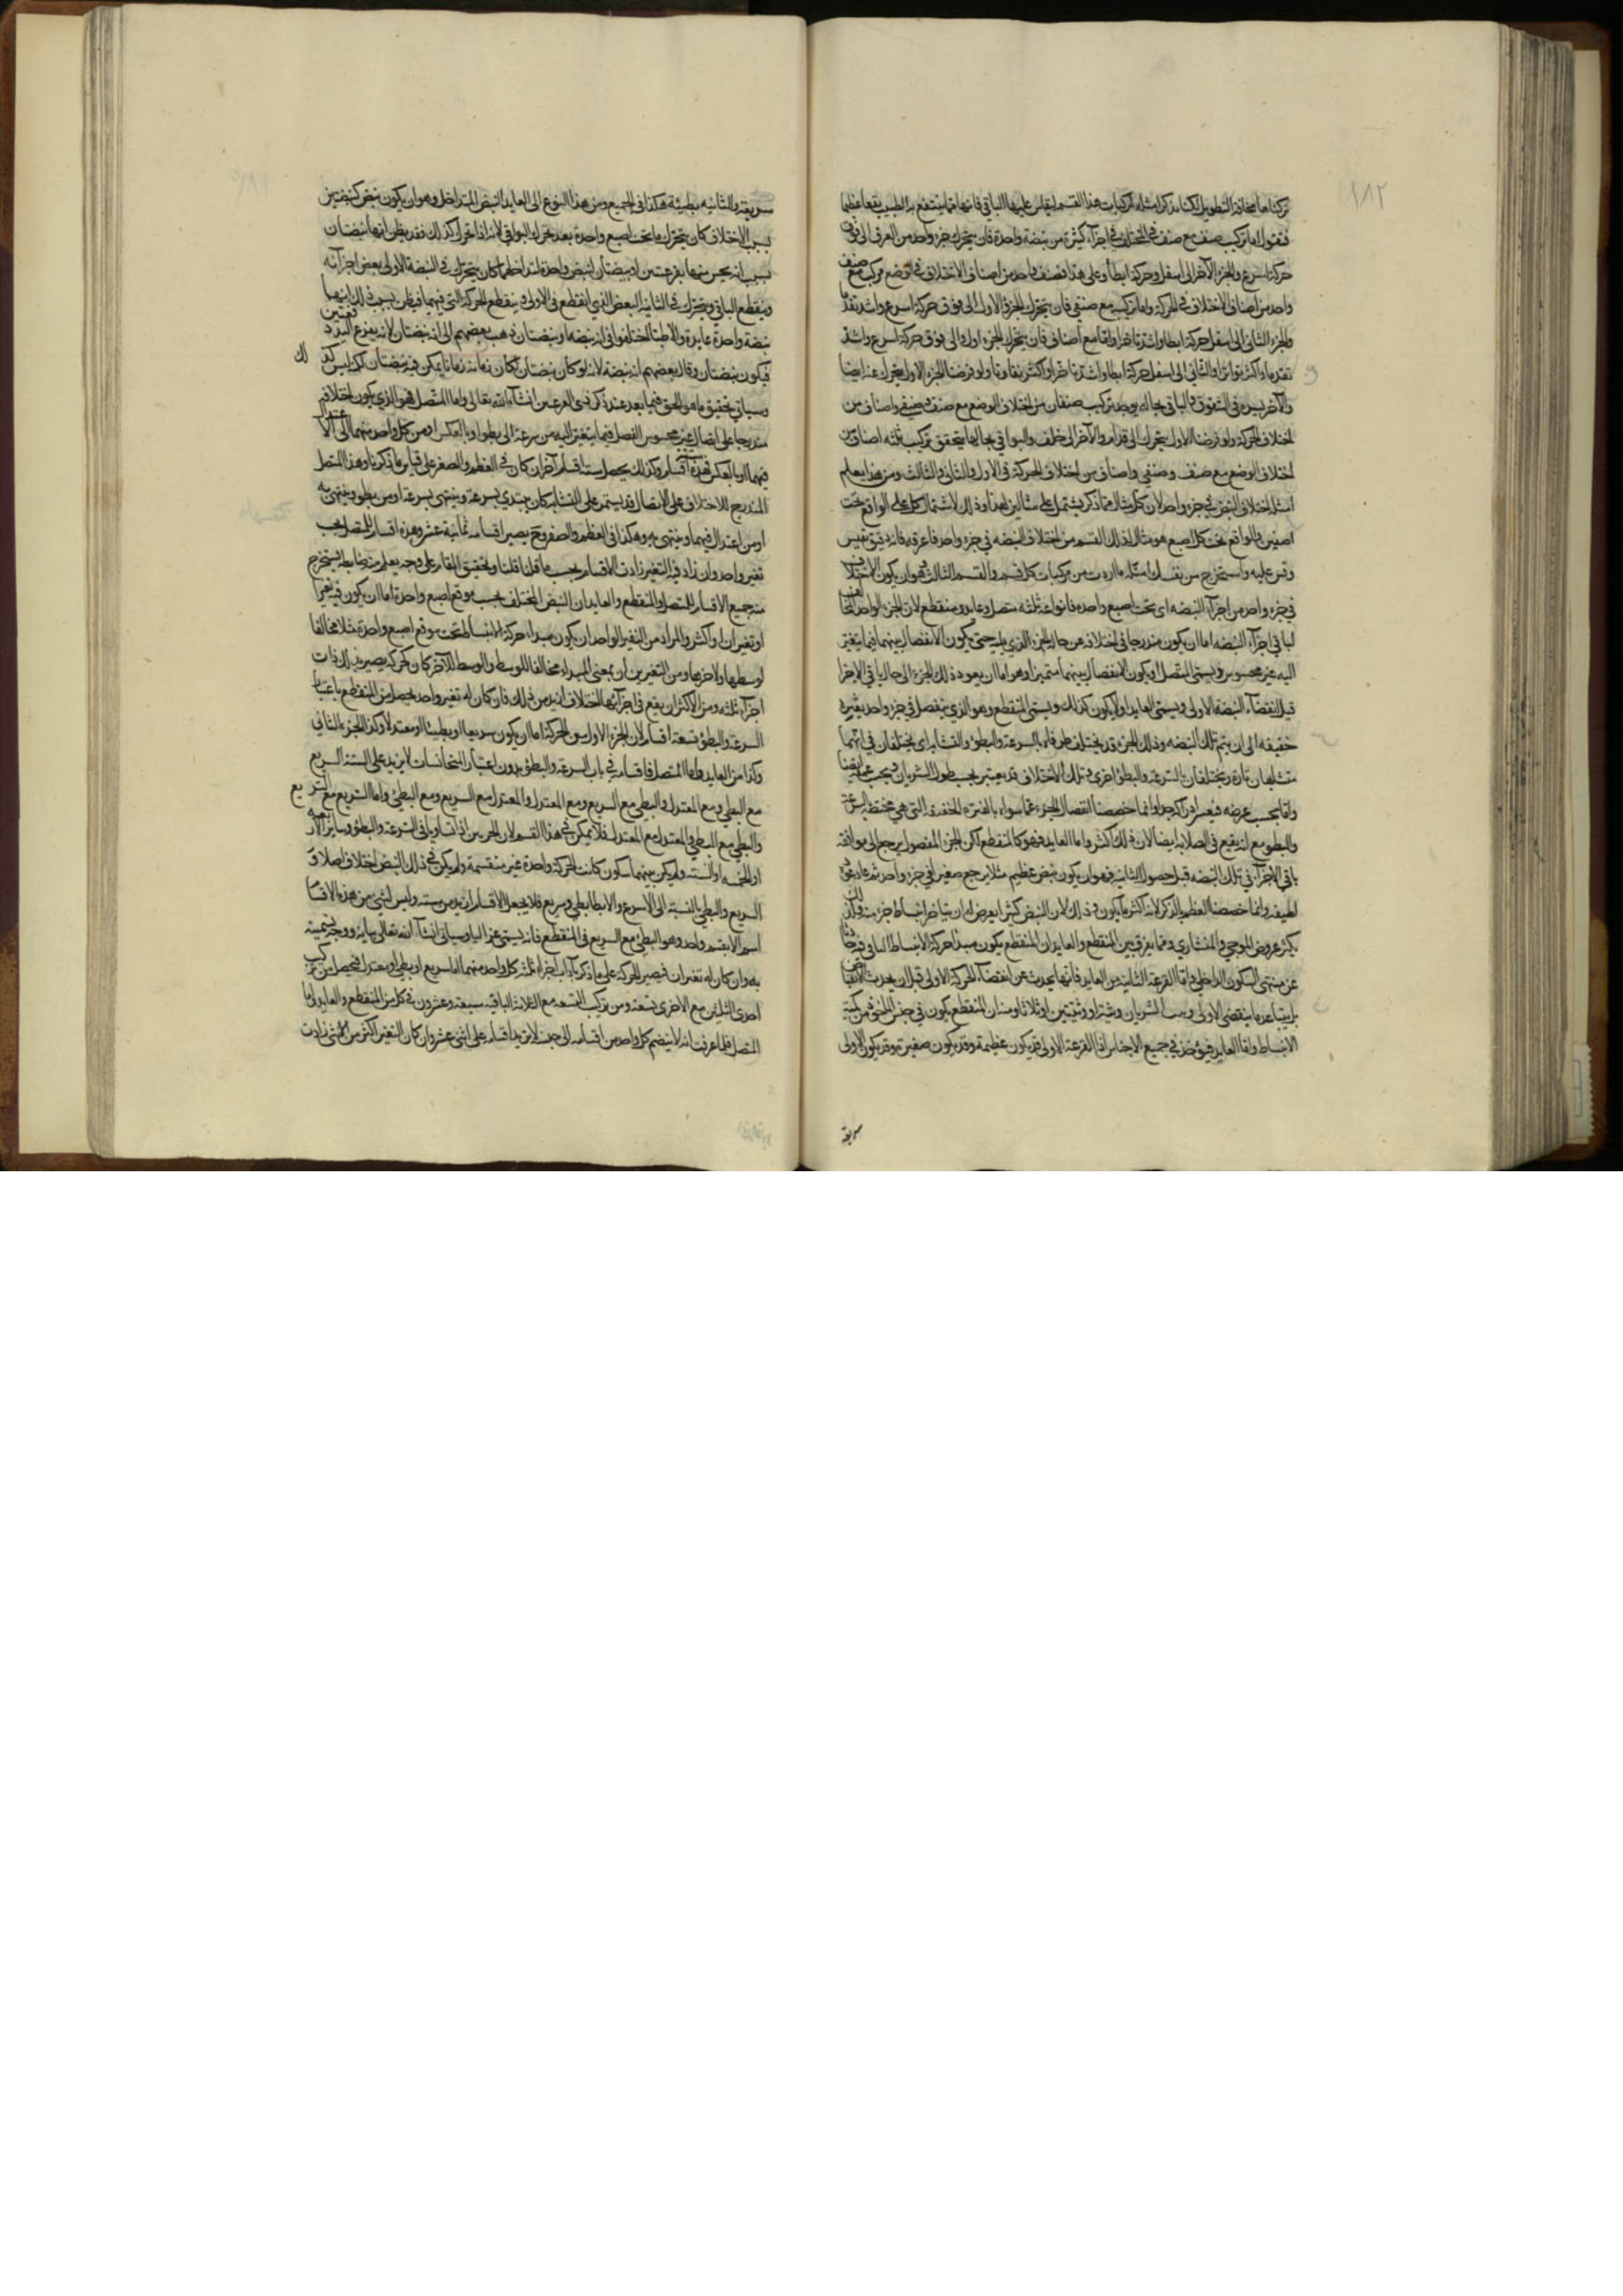 ١٨٢
تركناها مخافة التطويل لكنا نذكر امثلة لمركبات هذا القسم ليقاس عليها الباقي فانها مما ينتفع به الطبيب نفعا عظيما
فنقول اما تركيب صنف مع صنف في المختلف في اجزاء كثيرة من نبضة واحدة فان يتحرك جزء واحد من العرق الى فوق
حركة اسرع والجزء الآخر الى اسفل وحركة ابطأ وعلى هذا فصنف واحد من اصناف الاختلاف في الوضع مركب مع صنف
واحد من اصناف الاختلاف في الحركة واما تركيبه مع صنفين فان يتحرك الجزء الاول الى فوق حركة اسرع واشد تقدما
والجزء الثاني الى اسفل حركة ابطأ واشد تأخرا واما مع اصناف فان يتحرك الجزء الاول الى فوق حركة اسرع واشد
تقدما واكثر تواترا والثاني الى اسفل حركة ابطأ واشد تأخرا واكثر تفاوتا ولو فرضنا الجزء الاول يتحرك عنه ايضا
والآخر يسرة في الشهوق والباقي بحاله يوجد تركيب صنفان من اختلاف الوضع مع صنف وصنفين واصناف من
اختلاف الحركة ولو فرضنا الاول يتحرك الى قدام والآخر الى خلف والبواقي بحالها يتحقق تركيب ثلثة اصناف من
اختلاف الوضع مع صنف وصنفين واصناف من اختلاف الحركة في الاول والثاني والثالث ومن هذا يعلم
امثلة اختلاف النبض في جزء واحد لان كل مثال مما ذكر يشتمل على مثالين لهذا وذلك لاشتمال كل على الواقع تحت
اصبعين والواقع تحت كل اصبع هو مثال لذلك القسم من اختلاف النبضة في جزء واحد فاعرفه فانه دقيق نفيس
وقس عليه واستخرج من نفسك امثلة ما اردت من مركبات كل قسم والقسم الثالث وهو ان يكون الاختلاف
في جزء واحد من اجزاء النبضة اي تحت اصبع واحدة فانواعه ثلثة متصل وعايد ومنقطع لان الجزء الواحد المخالف
لباقي اجزاء النبضة اما ان يكون متدرجا في اختلافه عن حال الجزء الذي يليه حتى يكون الانفصال بينهما فيما يتغير
اليه غير محسوس ويسمى المتصل او يكون الانفصال بينهما متميزا وهو اما ان يعود ذلك الجزء الى حال باقي الاجزا
قبل انقضاء النبضة الاولى ويسمى العايد او لا يكون كذلك ويسمى المنقطع وهو الذي ينفصل في جزء واحد بفترة
خفيفة الى ان يتم تلك النبضة وذلك الجزء قد يختلف طرفاه بالسرعة والبطؤ والتشابه اي يختلفان في انهما
متشابهان تارة ومختلفان بالسرعة والبطؤ اخرى وتلك الاختلاف قد يعتبر بحسب طول الشريان وبحسب عمقه ايضا
واما بحسب عرضه فيعسر ادراكه جدا وانما خصصنا انفصال الجزء عما سواه بالفترة الخفيفة التي هي مختصة بالسرعة
والبطؤ مع انه يقع في الصلابة ايضا لان ذلك اكثر واما العايد فهو كالمنقطع لكن الجزء المفصول يرجع الى موافقة
باقي الاجزاء في تلك النبضة قبل حصول الثانية فهو ان يكون نبض عظيم مثلا يرجع صغيرا في جزء واحد ثم عاد عودة
لطيفة وانما خصصنا العظيم بالذكر لانه اكثر ما يكون وذلك لان النبض كثيرا يعرض له ان يتأخر انبساط جزء منه ولذلك
يكثر عروض الموجي والمنشاري ومما يفرق بين المنقطع والعايد ان المنقطع يكون مبدأ حركة الانبساط الباقي فيه حادثا
عن منتهى السكون الداخلي واما القرعة الثانية من العايد فانها يحدث عن انقضاء الحركة الاولى قبل ان يحدث الانقباض
الانبساط واما العايد فيؤخذ في جميع الاجناس اذ القرعة الاولى قد يكون عظيمة وقد يكون صغيرة وقد يكون الاولى
سريعة
سريعة والثانية بطيئة هكذا في الجميع ومن هذا النوع الى العايد النبض المتداخل وهو ان يكون نبض كنبضتين
بسبب الاختلاف كان يتحرك ما تحت اصبع واحدة بعد تحرك البواقي لانه اذا تحرك كذلك فقد يظن انها نبضتان
بسبب انه يحس منها بقرعتين او نبضتان كنبض واحدة لتداخلهما كان يتحرك في النبضة الاولى بعض اجزائه
وينقطع الباقي ويتحرك في الثانية البعض الذي انقطع في الاولى وينقطع الحركة التي فيهما فيظن بسبب ذلك انهما
نبضة واحدة عايدة والاطبا اختلفوا في انه نبضة او نبضتان ذهب بعضهم الى انه نبضتان لانه يقرع اليد قرعتين
فيكون نبضتان وقال بعضهم انه نبضة لانه لو كان نبضتان لكان زمانه زمانا يمكن فيه نبضتان لكن ليس كذلك
وسياتي تحقيق ما هو الحق فيما بعد عند ذكر ذي القرعتين انشاء الله تعالى واما المتصل فهو الذي يكون اختلافه
متدرجا على اتصال غير محسوس الفصل فيما يتغير اليه من سرعة الى بطؤ او بالعكس او من كل واحد منهما الى الاعتدال
فيهما او بالعكس فهذه اقسام وكذلك يحصل ستة اقسام آخر ان كان في العظم والصغر على قياس ما ذكرنا وهذا المتصل
المتدرج للاختلاف على الاتصال قد يستمر على التشابه كان يبتدي بسرعة وينتهي بسرعة او من بطؤ وينتهي به
او من اعتدال فيهما وينتهي به وهكذا في العظم والصغر وح يصير اقسامه ثمانية عشر وهذه اقسام المتصل بحسب
تغير واحد وان زاد فيه التغير زادت الاقسام بحسب ما قلنا ولتحقيق المقام على وجه يعلم منه ضابطة يستخرج
منه جميع الاقسام للمتصل والمنقطع والعايد ان النبض المختلف بحسب موقع اصبع واحدة اما ان يكون فيه تغير
او تغيران او اكثر والمراد من التغير الواحد ان يكون مبداء حركة الانبساط تحت موقع اصبع واحدة مثلا مخالفا
لوسطها ولاخرها ومن التغيرين ان يمعنى المبداء مخالفا للوسط والوسط للآخر كان حركة يصير بذلك ذات
اجزاء ثلثة ومن الاكثر ان يقع في اجزائها اختلاف ازيد من ذلك فان كان له تغير واحد يحصل من المنقطع باعتبار
السرعة والبطؤ تسعة اقسام لان الجزء الاول من الحركة اما ان يكون سريعا او بطيئا او معتدلا وكذا الجزء الثاني
وكذا من العايد واما المتصل فاقسامه في باب السرعة والبطؤ بدون اعتبار المتجانسات لا يزيد على الستة السريع
مع البطي ومع المعتدل والبطي مع السريع ومع المعتدل والمعتدل مع السريع ومع البطي واما السريع مع السريع
والبطي مع البطي والمعتدل مع المعتدل فلا يمكن في هذا القسم لان الجزئين اذا تساويا في السرعة والبطؤ وساير الاربعة
او الخمسة او الستة ولم يكن بينهما سكون كانت الحركة واحدة غير منقسمة ولم يكن في ذلك النبض اختلاف اصلا و
السريع والبطي بالنسبة الى الاسرع والابطا بطي وسريع فلا يجعل الاقسام ازيد من ستة وليس لشئ من هذه الاقسام
اسم الا بقسم واحد وهو البطي مع السريع في المنقطع فانه يسمى غزاليا وسياتي انشاء الله تعالى بيانه ووجه تسميته
به وان كان له تغيران فيصير الحركة على ما ذكر ذات اجزاء ثلثة كل واحد منهما اما سريع او بطي او معتدل فيحصل من تركيب
احدى الثلثين مع الاخرى تسعة ومن تركيب التسعة مع الثلاثة الباقية سبعة وعشرون في كل من المنقطع والعايد واما
المتصل فلما عرفت انه لا ينضم كل واحد من اقسامه الى جنسه لا يزيد اقسامه على اثنى عشر وان كان التغير اكثر من اثنين زادت